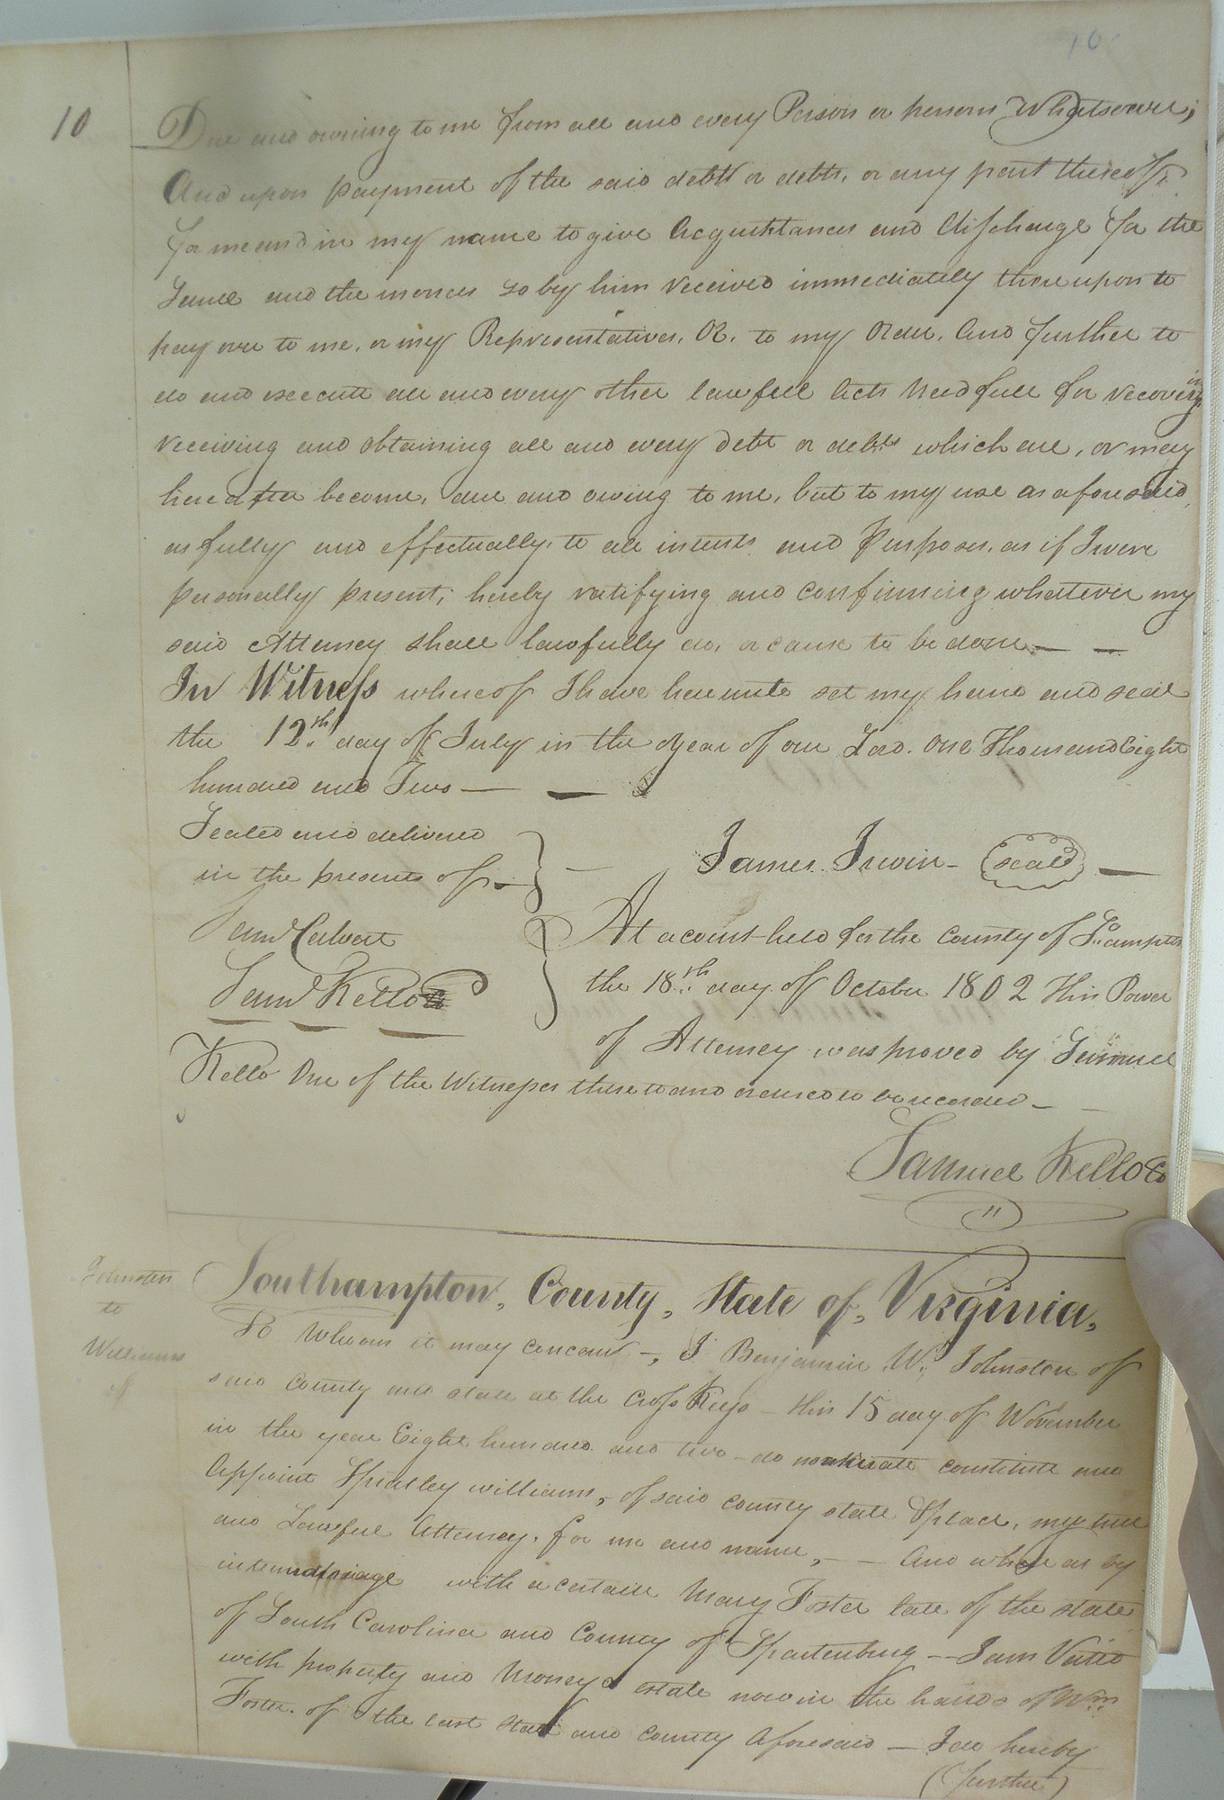 10
Due and owing to me from all and every Person or persons Whatsoever;
And upon payment of the said debt or debts, or any part thereof,
for me and in my name to give Acquittances and discharge for the
Same and the monies so by him received immediately thereupon to
pay over to me, or my Representatives, OR, to my Order, And further to
do and execute all and every other lawfull Acts needfull for recovering
receiving and obtaining all and every debt or debts which are, or may
hereafter become, due and owing to me, but to my use as aforesaid,
as fully and effectually, to all intents and Purposes, as if I were
personally present; hereby ratifying and confirming whatever my
said Attorney shall lawfully do, or cause to be done —
In Witness whereof I have hereunto set my hand and seal
the 12th day of July in the Year of our Lord. One Thousand Eight
hundred and Two —
Sealed and delivered
in the presents of —
James Irwin — seald
Saml Calvert
Saml Kello
At a court held for the county of So..ampton
the 18th day of October 1802 This Power
of Attorney was proved by Samuel
Kello One of the Witnesses thereto and ordered to be recorded —
Samuel Kello Co
Johnston
to
Williams
Southampton, County, State of, Virginia,
To Whom it may concern —, I Benjamin W. Johnston of
said county and state at the Cross Keys — this 15 day of November
in the year Eight hundred and two — do nominate constitute and
Appoint Spratley williams, of said county state & place, my true
and Lawful Attorney, for me and name, — And where as by
intermarriage with a certain Mary Foster late of the state
of South Carolina and County of Spartenburg — I am Vested
with property and Money & estate now in the hands of Wm
Foster. of the last State and county Aforesaid — I do hereby
(further)